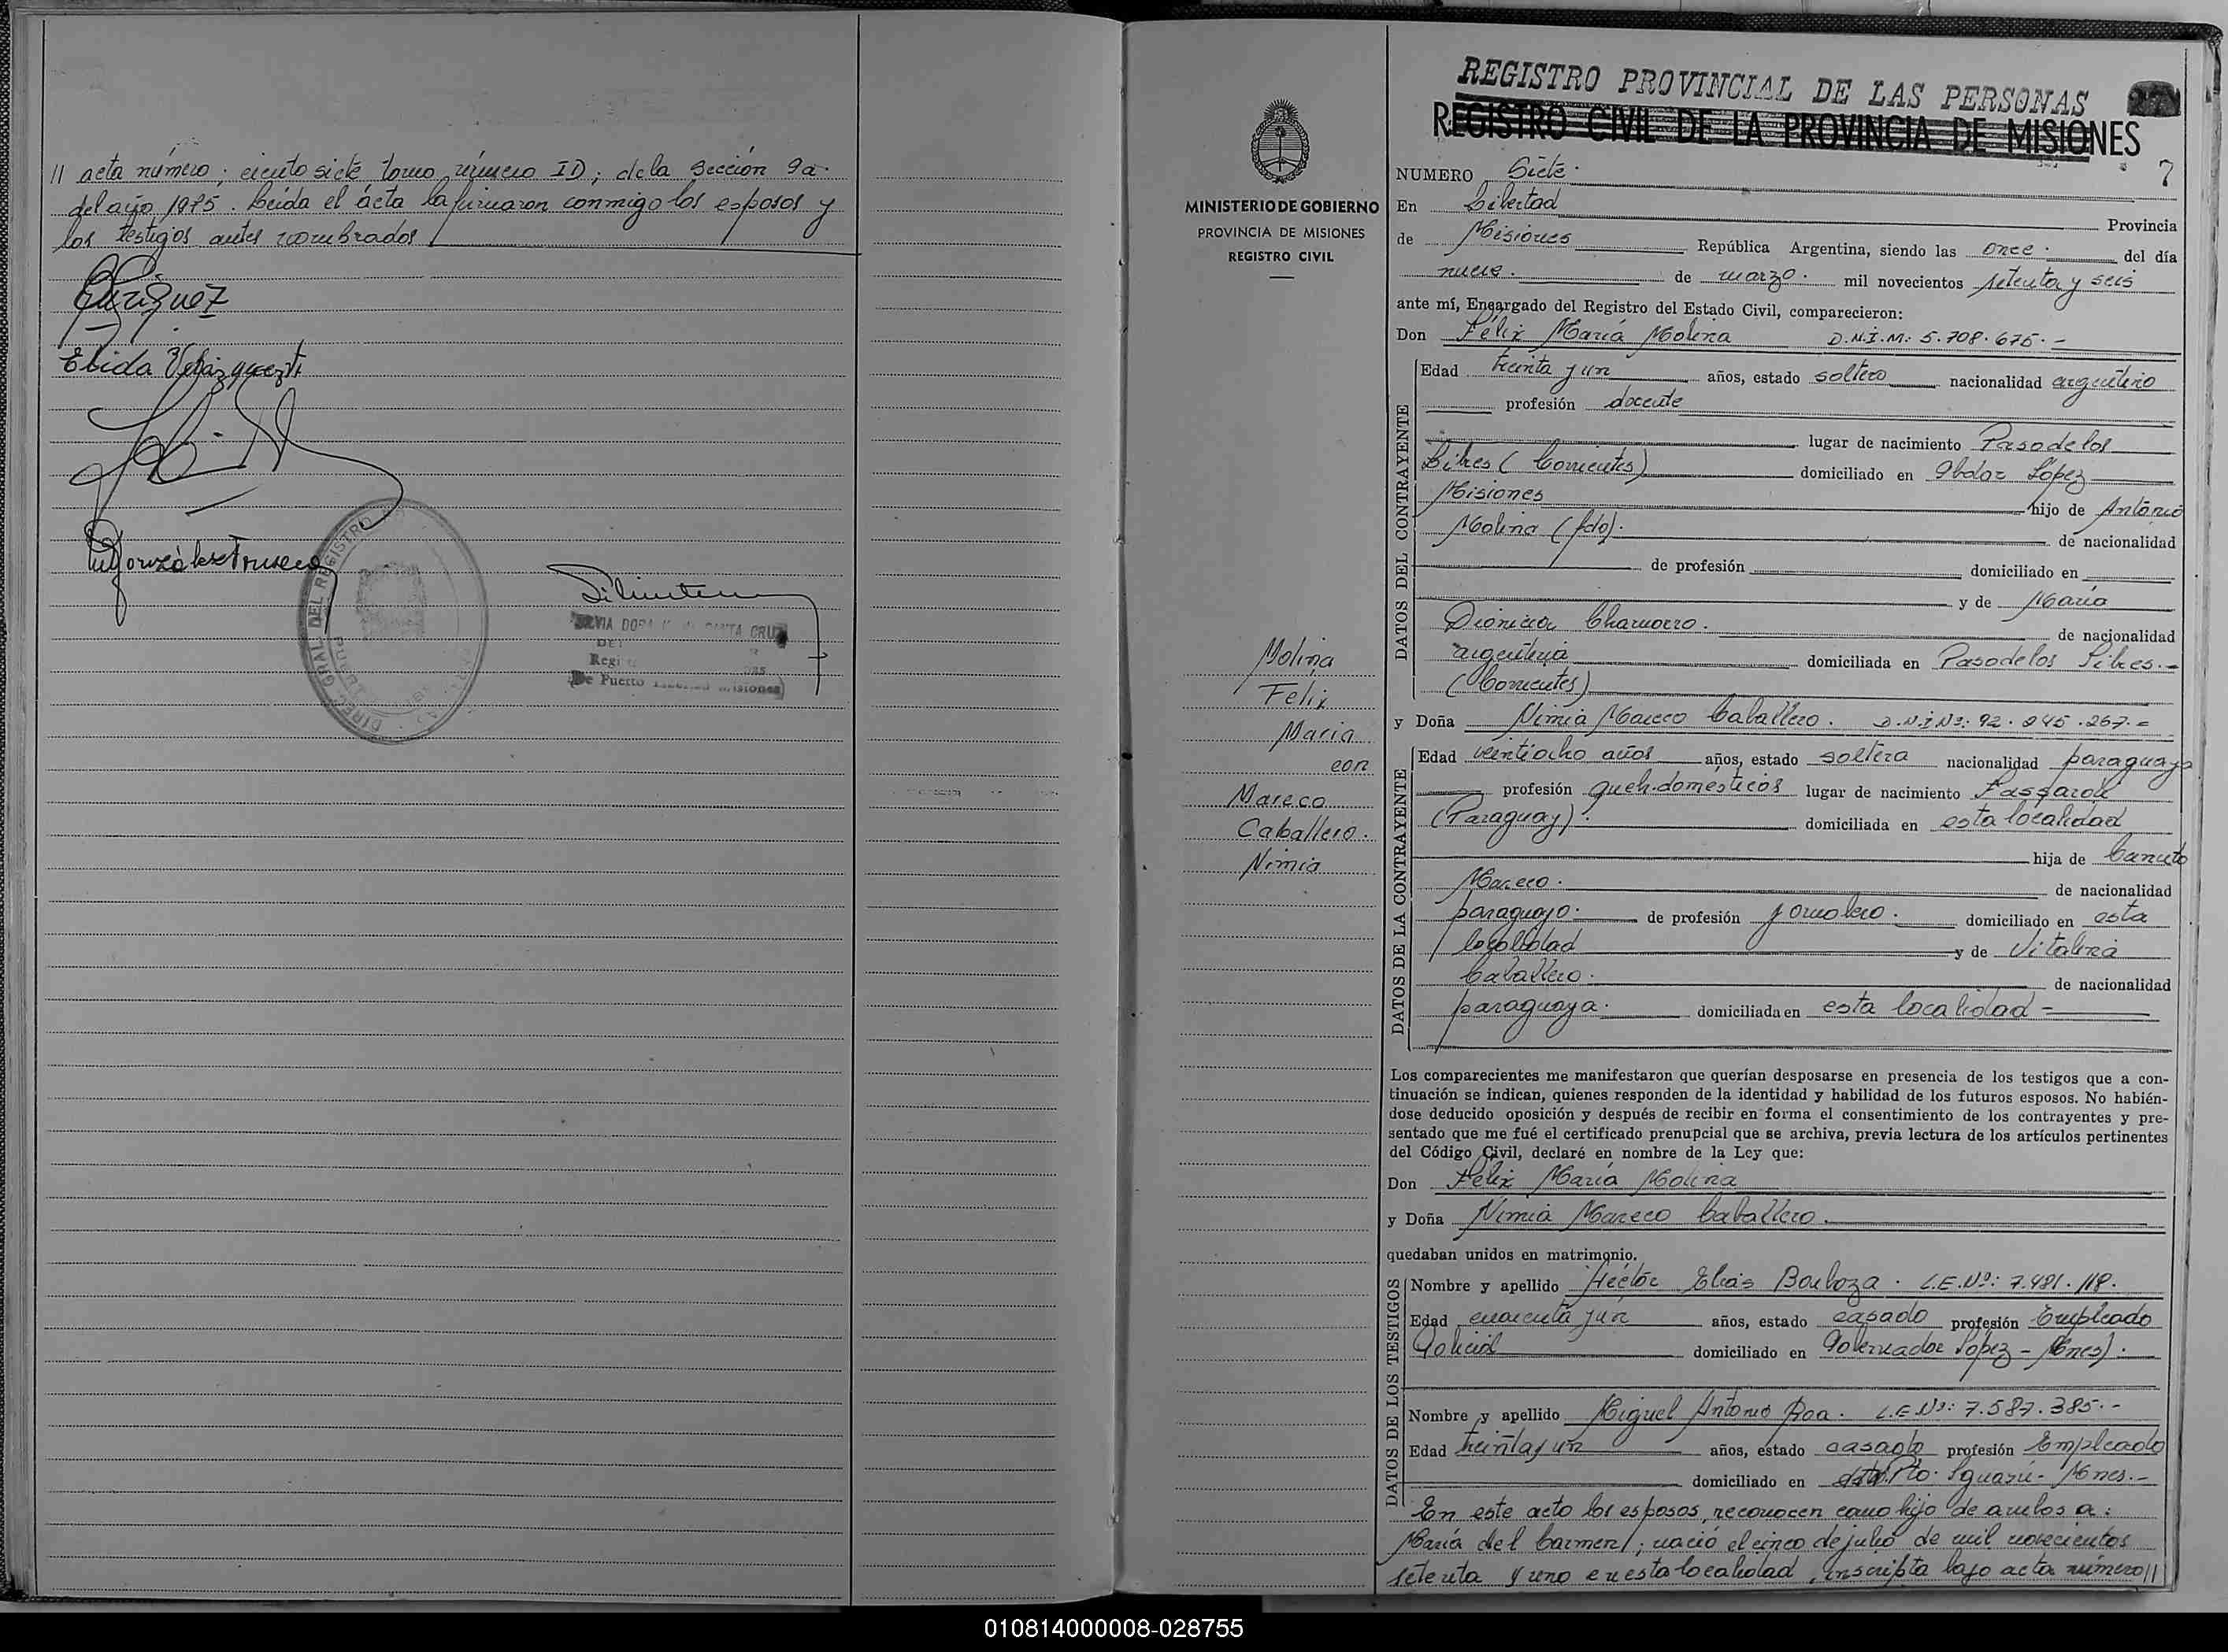 // acta número; ciento siete tomo número ID; de la sección 9a.
del año 1975. Leída el acta la firmaron conmigo los esposos y
los testigos antes nombrados
Elida Velázquez
DIREC. GRAL. DEL REGISTRO
SILVIA DORA
SANTA CRUZ
De Puerto
Misiones
MINISTERIO DE GOBIERNO
PROVINCIA DE MISIONES
REGISTRO CIVIL
Molina
Felix
Maria
con
Mareco
Caballero.
Nimia
REGISTRO PROVINCIAL DE LAS PERSONAS
REGISTRO CIVIL DE LA PROVINCIA DE MISIONES
NUMERO Siete.
7
En Libertad Provincia
de Misiones República Argentina, siendo las once. del día
nueve. de marzo. mil novecientos setenta y seis
ante mí, Encargado del Registro del Estado Civil, comparecieron:
Don Félix María Molina D.N.I.M: 5.708.675.-
DATOS DEL CONTRAYENTE
Edad treinta y un años, estado soltero nacionalidad argentino
profesión docente
lugar de nacimiento Paso de los
Libres (Corrientes) domiciliado en Gbdor López
Misiones hijo de Antonio
Molina (fdo). de nacionalidad
de profesión domiciliado en
y de María
Dionicia Chamorro. de nacionalidad
argentina domiciliada en Paso de los Libres.-
(Corrientes)
y Doña Nimia Mareco Caballero. D.N.I Nº: 92.945.267.=
DATOS DE LA CONTRAYENTE
Edad veintiocho años años, estado soltera nacionalidad paraguaya
profesión queh. domésticos lugar de nacimiento
(Paraguay). domiciliada en esta localidad
hija de Canuto
Mareco. de nacionalidad
paraguayo. de profesión jornalero. domiciliado en esta
localidad y de Vitalina
Caballero. de nacionalidad
paraguaya. domiciliada en esta localidad =
Los comparecientes me manifestaron que querían desposarse en presencia de los testigos que a con-
tinuación se indican, quienes responden de la identidad y habilidad de los futuros esposos. No habién-
dose deducido oposición y después de recibir en forma el consentimiento de los contrayentes y pre-
sentado que me fué el certificado prenupcial que se archiva, previa lectura de los artículos pertinentes
del Código Civil, declaré en nombre de la Ley que:
Don Félix María Molina
y Doña Nimia Mareco Caballero.
quedaban unidos en matrimonio.
DATOS DE LOS TESTIGOS
Nombre y apellido Héctor Elias Barboza. L.E.Nº: 7.481.118.
Edad cuarenta y un años, estado casado profesión Empleado
Policial domiciliado en Gobernador López - (Mnes).
Nombre y apellido Miguel Antonio Roa. L.E Nº: 7.587.385.-
Edad treinta y un años, estado casado profesión Empleado
domiciliado en Pto. Iguazú - Mnes.-
En este acto los esposos, reconocen como hijo de ambos a:
María del Carmen; nació el cinco de julio de mil novecientos
setenta y uno en esta localidad, inscripta bajo acta número//
010814000008-028755